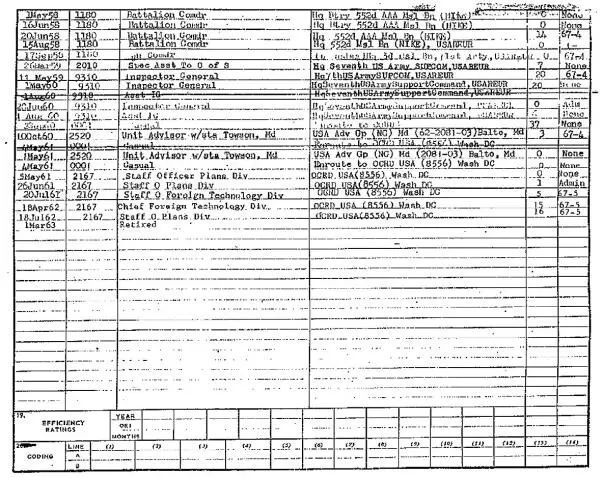 1May58 1180 Battalion Comdr Hq Btry 552d AAA Msl Bn (NIKE) 0 None
16Jun58 1180 Battalion Comdr Hq Btry 552d AAA Msl Bn (NIKE) 0 None
20Jun58 1180 Battalion Comdr Hq Btry 552 AAA Msl Bn (NIKE) 14 67-4
15Aug58 1180 Battalion Comdr Hq 552d Msl Bn (NIKE), USAREUR
1180 Comdr
26Mar59 2010 Spec Asst To C of S Hq Seventh US Army SUPCOM, USAREUR 7 None
11 May59 9310 Inspector General Hq7thUSArmySUPCOM, USAREUR 20 67-4
1May60 9310 Inspector General HqSeventhUSArmySupportCommand, USAREUR 20 None
9310 Asst IG HqSeventhUSArmySupportCommand, USAREUR
20Jun60 9310 Inspector General HqSeventhUSArmySupportCommand, 0
9310 Asst IG None
0001 37 None
10Oct60 2520 Unit Advisor w/sta Towson, Md USA Adv Gp (NG) Md (62-2081-03)Balto, Md 3 67-4
4May61 0001 Casual Enroute to OCRD USA(8556) Wash DC
1May61 2520 Unit Advisor w/sta Towson, Md USA Adv Gp (NG) Md (2081-03) Balto, Md 0 None
4May61 0001 Casual Enroute to OCRD USA(8556) Wash DC 0 None
5May61 2167 Staff Officer Plans Div OCRD USA(8556) Wash DC 0 None
26Jun61 2167 Staff O Plans Div OCRD USA(8556) Wash DC 1 Admin
20Jul61 2167 Staff O Foreign Technology Div OCRD USA (8556) Wash DC 5 67-5
18Apr62 2167 Chief Foreign Technology Div OCRD USA (8556) Wash DC 15 67-5
18Jul62 2167 Staff O Plans Div OCRD USA (8556) Wash DC 16 67-5
1Mar63 Retired
19. EFFICIENCY RATINGS YEAR
MONTHS
CODING LINE (1) (2) (3) (4) (5) (6) (7) (8) (9) (10) (11) (12) (13) (14)
A
B